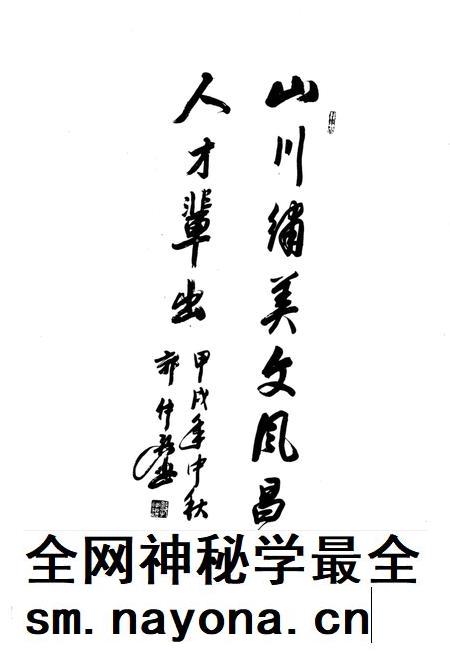 山川繡美文風昌
人才輩出
甲戌年中秋
全网神秘学最全
sm.nayona.cn